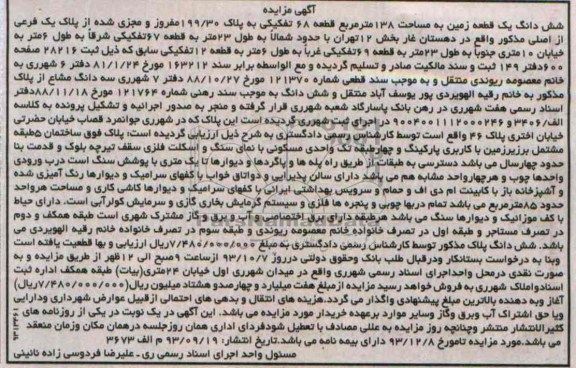 آگهی مزایده
شش دانگ یک قطعه زمین به مساحت ۱۳۸مترمربع قطعه ۶۸ تفکیکی به پلاک ۱۹۹/۳۰مفروز و مجزی شده از پلاک یک فرعی
از اصلی مذکور واقع در دهستان غار بخش ۱۲تهران با حدود شمالاً به طول ۲۳متر به قطعه ۶۷تفکیکی شرقاً به طول ۶متر به
خیابان ۱۰متری جنوباً به طول ۲۳متر به قطعه ۶۹تفکیکی غرباً به طول ۶متر به قطعه ۱۲تفکیکی سابق که ذیل ثبت ۲۸۲۱۶ صفحه
۶۰۰دفتر ۱۴۹ ثبت و سند مالکیت صادر و تسلیم گردیده و مع الواسطه برابر سند ۱۶۳۲۱۲ مورخ ۸۱/۱/۲۴ دفتر ۶ شهرری به
خانم معصومه ریوندی منتقل و به موجب سند قطعی شماره ۱۲۱۳۷۰ مورخ ۸۸/۱۰/۲۷ دفتر ۷ شهرری سه دانگ مشاع از پلاک
مذکور به خانم رقیه الهویردی پور یوسف آباد منتقل و شش دانگ به موجب سند رهنی شماره ۱۲۱۷۶۴ مورخ ۸۸/۱۱/۱۸دفتر
اسناد رسمی هفت شهرری در رهن بانک پاسارگاد شعبه شهرری قرار گرفته و منجر به صدور اجرائیه و تشکیل پرونده به کلاسه
۳۴۰۶/الف و ۹۰۰۴۰۰۱۱۱۲۰۰۰۲۴۶ در اجرای ثبت شهرری گردیده است این پلاک که در شهرری جوانمرد قصاب خیابان حضرتی
خیابان اختری پلاک ۴۶ واقع است توسط کارشناس رسمی دادگستری به شرح ذیل ارزیابی گردیده است: پلاک فوق ساختمان ۵طبقه
مشتمل برزیرزمین با کاربری پارکینگ و چهارطبقه تک واحدی مسکونی با نمای سنگ و اسکلت فلزی سقف تیرچه بلوک و قدمت بنا
حدود چهارسال می باشد دسترسی به طبقات از طریق راه پله ها و پاگردها و دیوارها تا یک متری با پوشش سنگ است درب ورودی
واحدها چوب و هرچهارواحد مشابه هم می باشد دارای سالن پذیرایی و دواتاق خواب با کفهای سرامیک و دیوارها رنگ آمیزی شده
و آشپزخانه باز با کابینت ام دی اف و حمام و سرویس بهداشتی ایرانی با کفهای سرامیک و دیوارها کاشی کاری و مساحت هرواحد
حدود ۸۵مترمربع می باشد تمام دربها چوبی و پنجره ها فلزی و سیستم گرمایش بخاری گازی و سرمایش کولرآبی است. دارای حیاط
با کف موزائیک و دیوارها سنگ می باشد هرطبقه دارای برق اختصاصی و آب و برق و گاز مشترک شهری است طبقه همکف و دوم
در تصرف مستاجر و طبقه اول در تصرف خانواده خانم معصومه ریوندی و طبقه سوم در تصرف خانواده خانم رقیه الهویردی می
باشد. شش دانگ پلاک مذکور توسط کارشناس رسمی دادگستری به مبلغ ۷/۴۸۰/۰۰۰/۰۰۰ریال ارزیابی و بها قطعیت یافته است
وبنا به درخواست بستانکار ودرقبال طلب بانک وحقوق دولتی درروز ۹۳/۱۰/۷ ازساعت ۹صبح الی ۱۲ظهر از طریق مزایده و به
صورت نقدی درمحل واحداجرای اسناد رسمی شهرری واقع در میدان شهرری اول خیابان ۲۴متری(بیات) طبقه همکف اداره ثبت
اسنادواملاک شهرری به فروش خواهد رسید مزایده ازمبلغ هفت میلیارد و چهارصدو هشتاد میلیون ریال(۷/۴۸۰/۰۰۰/۰۰۰ریال)
آغاز وبه دهنده بالاترین مبلغ پیشنهادی واگذار می گردد.هزینه های انتقال و بدهی های احتمالی ازقبیل عوارض شهرداری ودارایی
ویا حق اشتراک آب وبرق وگاز وسایر موارد برعهده خریدار مورد مزایده می باشد. این آگهی در یک نوبت در یکی از روزنامه های
کثیرالانتشار منتشر وچنانچه روز مزایده به عللی مصادف با تعطیل شودفردای اداری همان روزجلسه درهمان مکان وزمان منعقد
می باشد.مورد مزایده تامورخ ۹۳/۱۲/۸ دارای بیمه نامه می باشد.تاریخ انتشار: ۹۳/۰۹/۱۹ م الف ۳۶۷۳
مسئول واحد اجرای اسناد رسمی ری ـ علیرضا فردوسی زاده نائینی